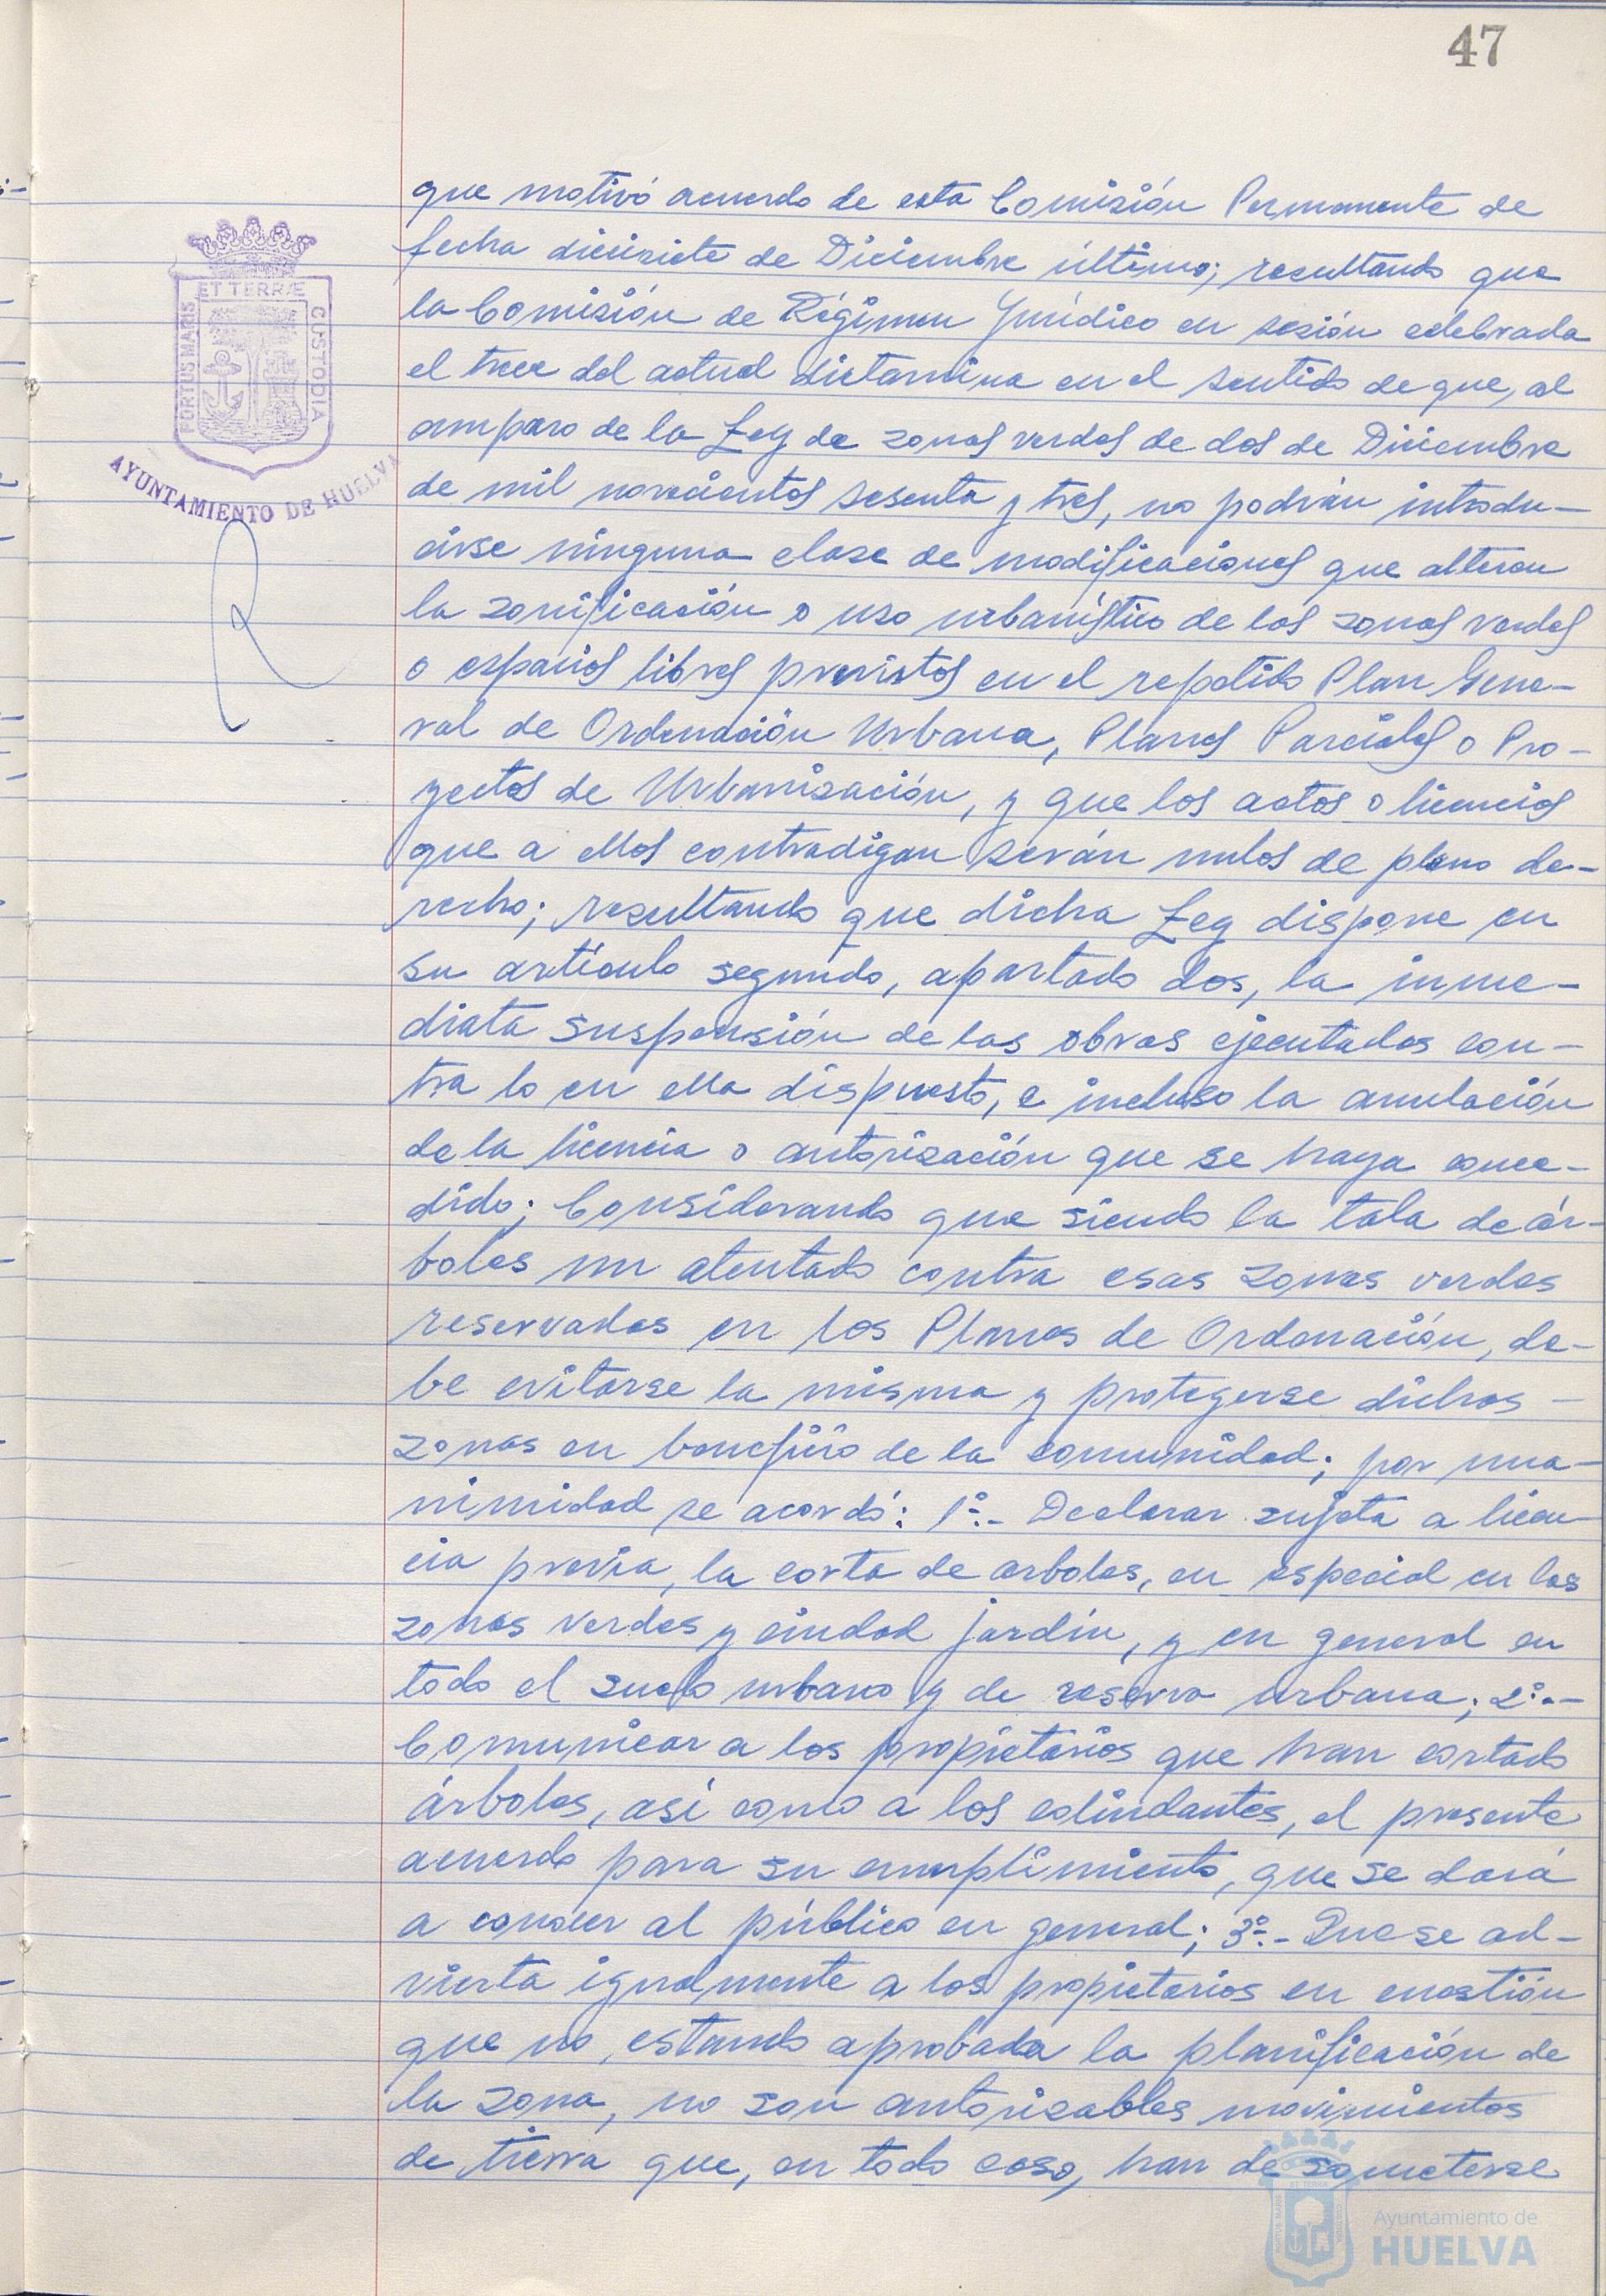 47
que motivó acuerdo de esta Comisión Permanente de
fecha diecisiete de Diciembre último; resultando que
la Comisión de Régimen Jurídico en sesión celebrada
el trece del actual dictamina en el sentido de que, al
amparo de la Ley de zonas verdes de dos de Diciembre
de mil novecientos sesenta y tres, no podrán introdu-
cirse ninguna clase de modificaciones que alteren
la zonificación o uso urbanístico de las zonas verdes
o espacios libres previstos en el repetido Plan Gene-
ral de Ordenación Urbana, Planes Parciales o Pro-
yectos de Urbanización, y que los actos o licencias
que a ellos contradigan serán nulos de pleno de-
recho; resultando que dicha Ley dispone en
su artículo segundo, apartado dos, la inme-
diata suspensión de las obras ejecutadas con-
tra lo en ella dispuesto, e incluso la anulación
de la licencia o autorización que se haya conce-
dido; Considerando que siendo la tala de ár-
boles un atentado contra esas zonas verdes
reservadas en los Planes de Ordenación, de-
be evitarse la misma y protegerse dichas -
zonas en beneficio de la comunidad; por una-
nimidad se acordó: 1º.- Declarar sujeta a licen-
cia previa, la corta de arboles, en especial en las
zonas verdes y ciudad jardín, y en general en
todo el suelo urbano y de reserva urbana; 2º.-
Comunicar a los propietarios que han cortado
árboles, así como a los colindantes, el presente
acuerdo para su cumplimiento, que se dará
a conocer al público en general; 3º.- Que se ad-
vierta igualmente a los propietarios en cuestión
que no estando aprobada la planificación de
la zona, no son autorizables movimientos
de tierra que, en todo caso, han de someterse
ET TERRÆ
PORTUS MARIS
CUSTODIA
AYUNTAMIENTO DE HUELVA
Ayuntamiento de
HUELVA